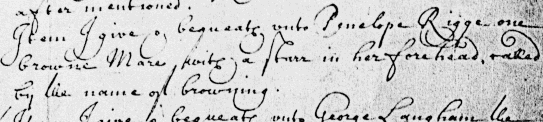 after mentioned.
Item I give & bequeath unto Penelope Rigge one
browne Mare, with a starr in her forehead, called
by the name of browning.
I give & bequeath unto George Langham the